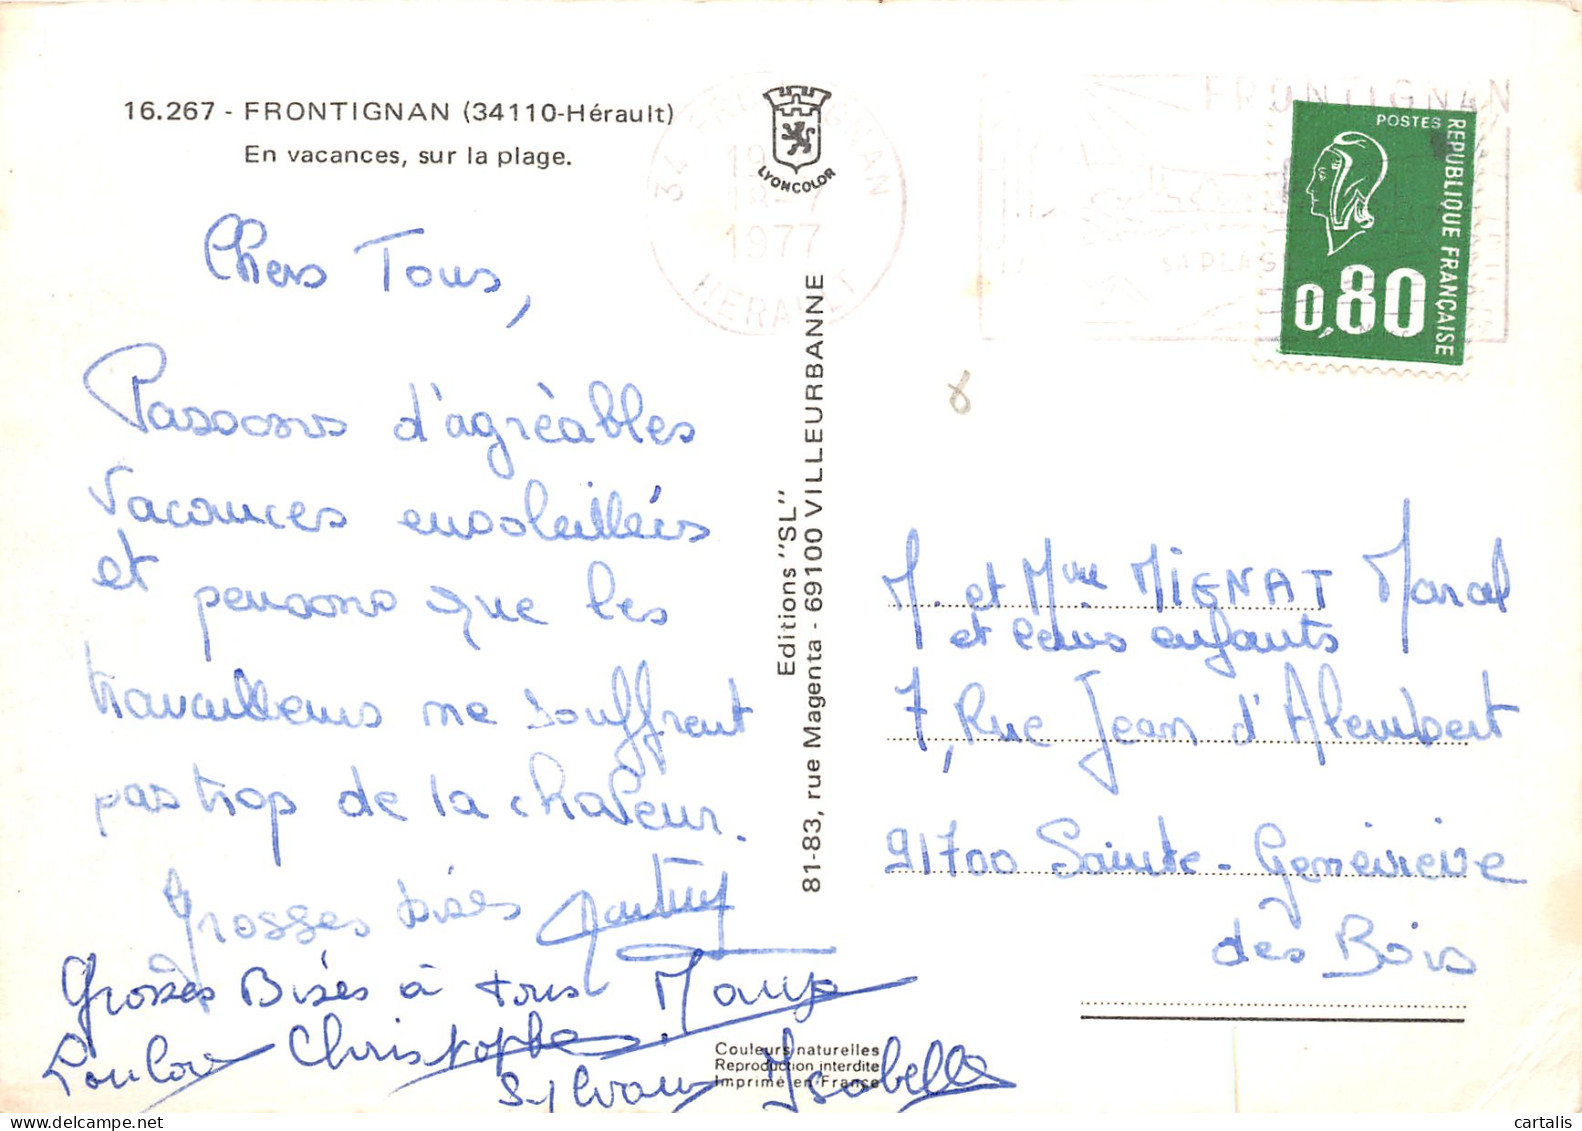 16.267 - FRONTIGNAN (34110-Hérault)
En vacances, sur la plage.
LYONCOLOR
34 FRONTIGNAN
1977
HERAULT
FRONTIGNAN
SA PLAGE
POSTES
REPUBLIQUE FRANÇAISE
0,80
Chers Tous,
Passons d'agréables
vacances ensoleillées
et pensons que les
travailleurs ne souffrent
pas trop de la chaleur.
Grosses bises
Grosses Bises à tous
Loulou Christophe
Sylvain Isabelle
Editions "SL"
81-83, rue Magenta - 69100 VILLEURBANNE
M. et Mme MIGNAT Marcel
et leurs enfants
7, Rue Jean d'Alembert
91700 Sainte-Geneviève
des Bois
Couleurs naturelles
Reproduction interdite
Imprimé en France
cartalis